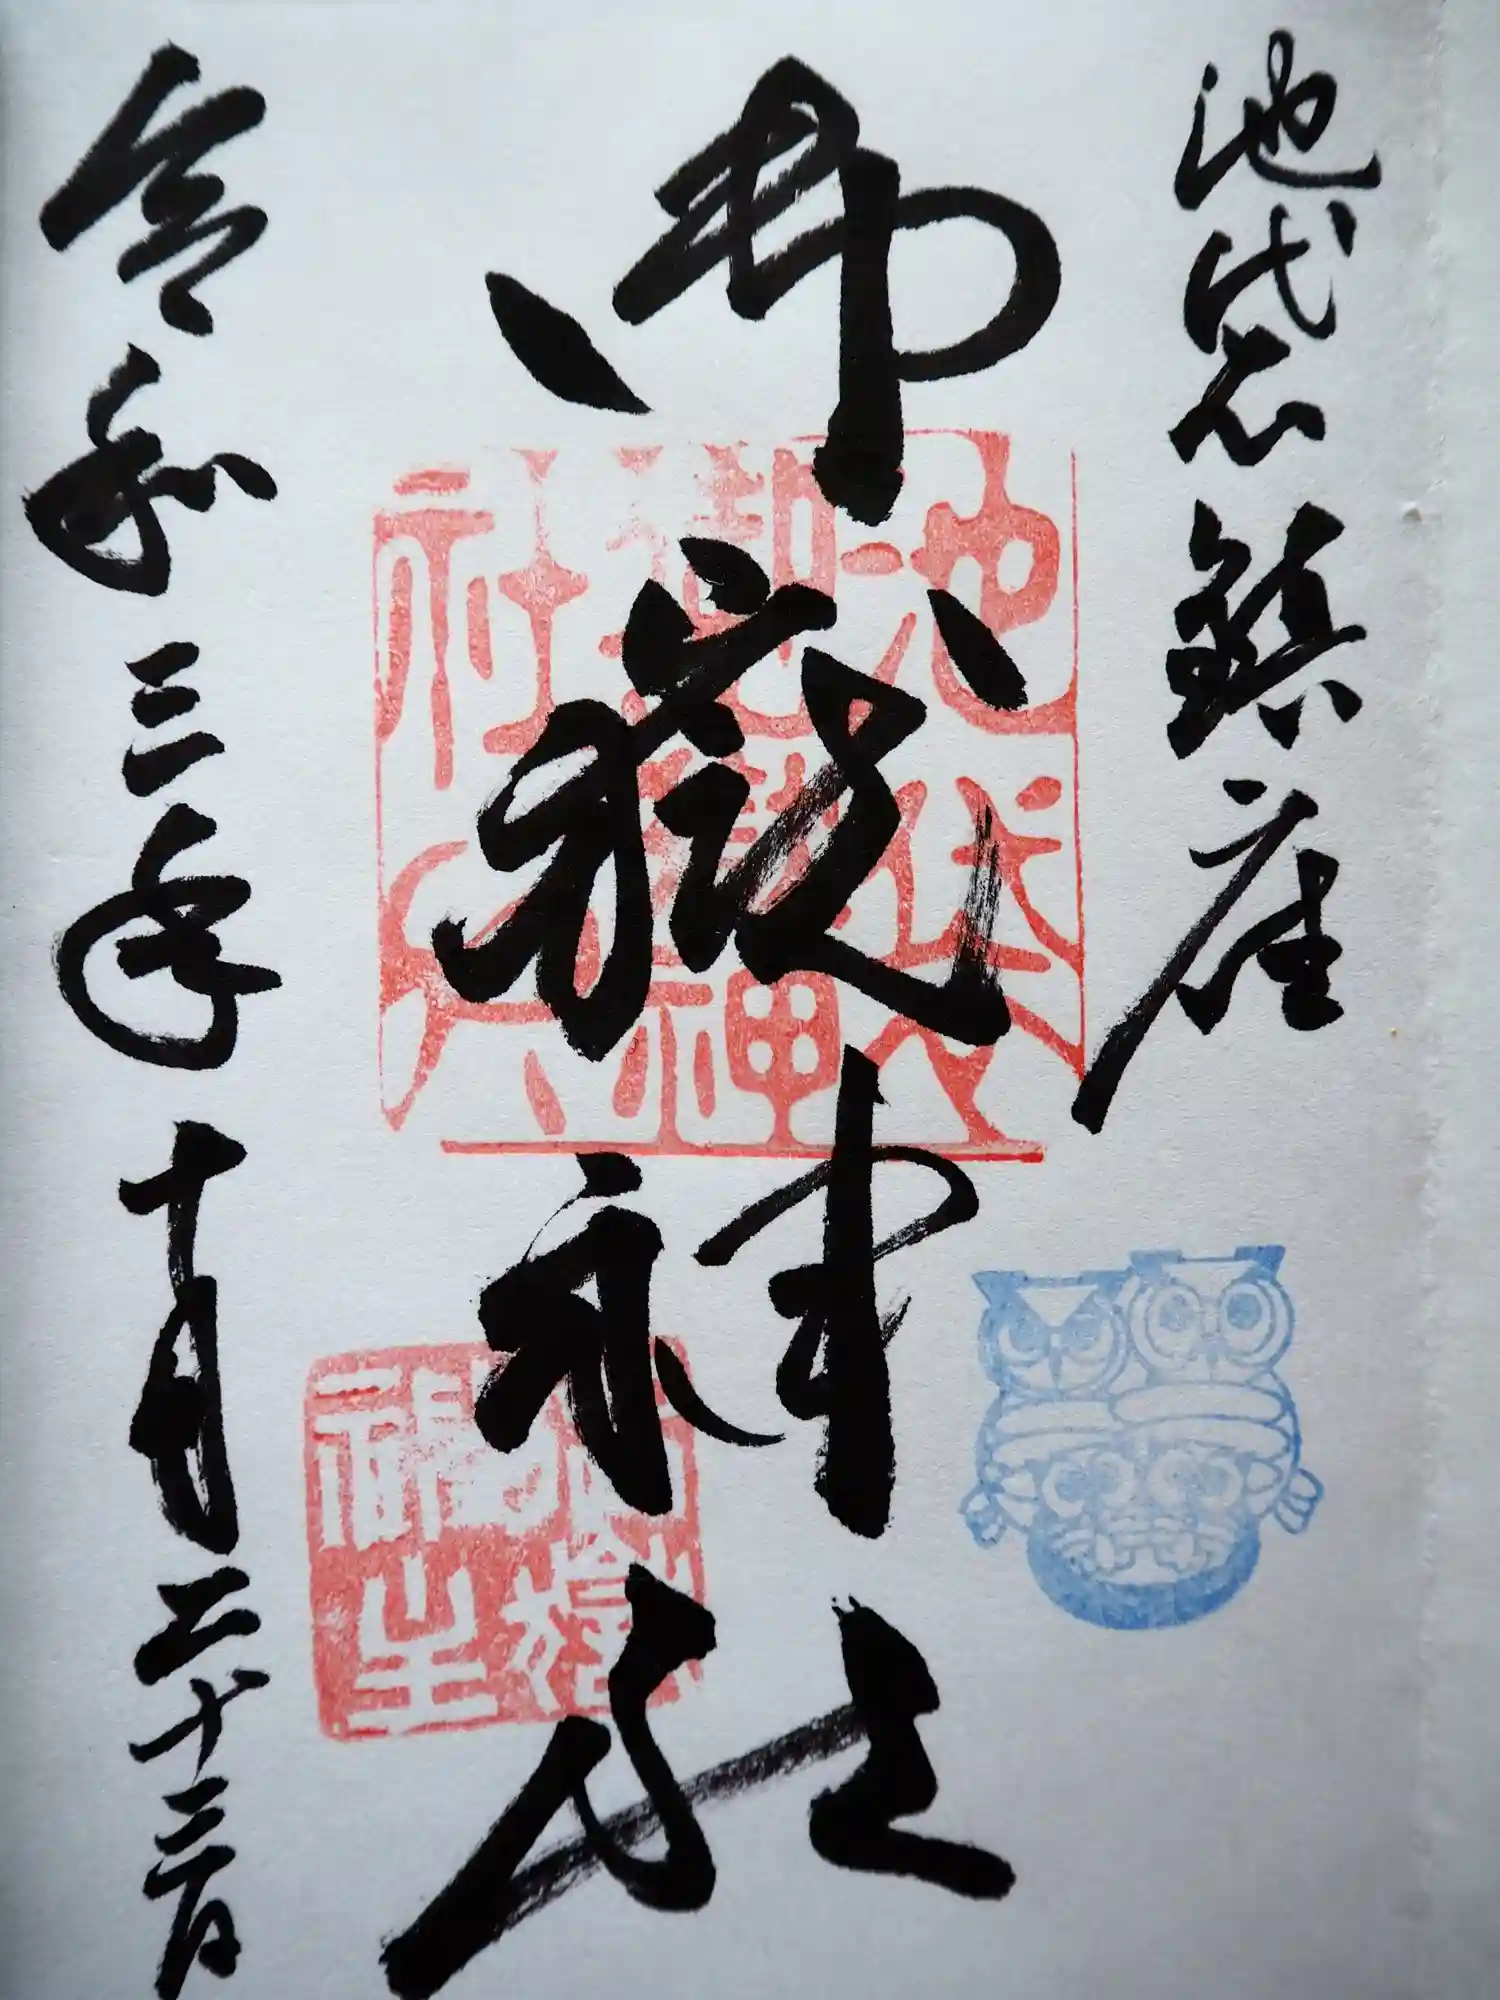 池袋鎮座
御嶽神社
令和三年十月二十三日
池袋
御嶽神
社